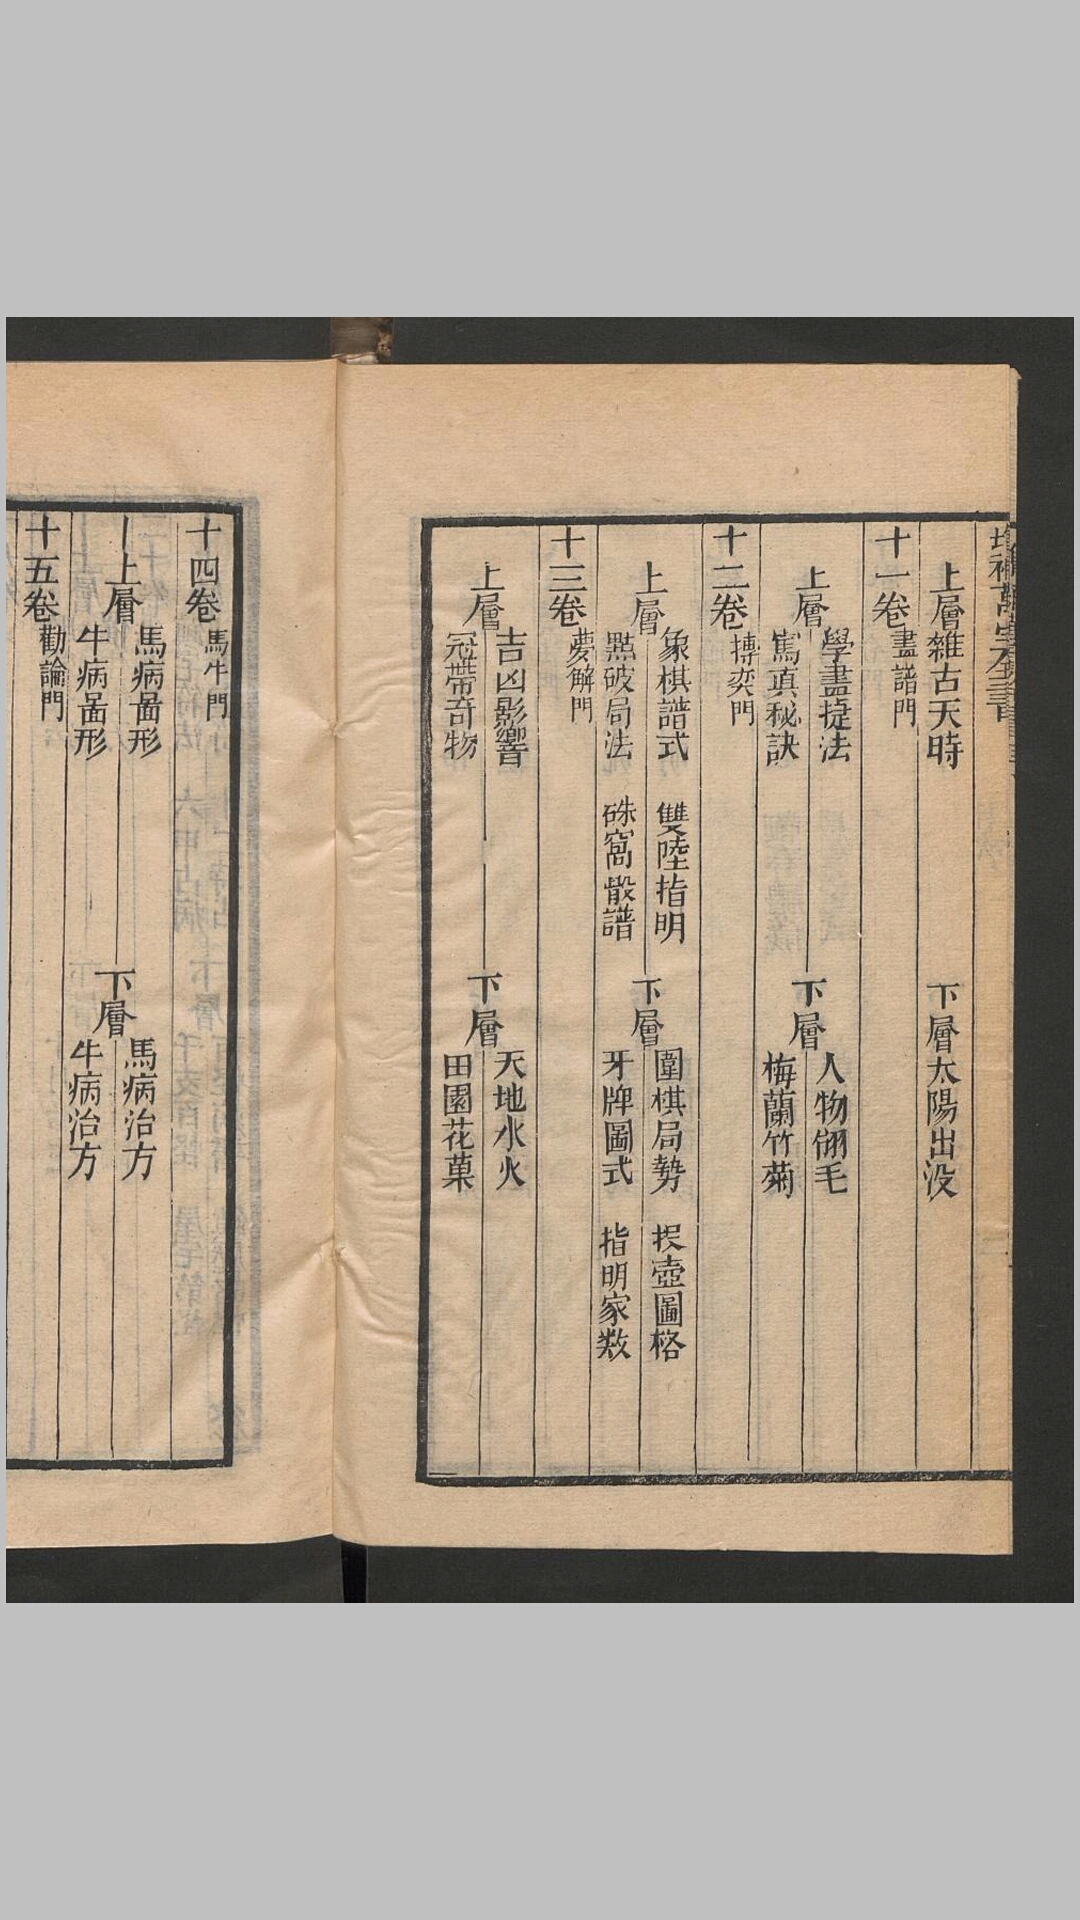 增補萬寶全書
上層雜古天時 下層太陽出没
十一卷 畫譜門
上層 學畫捷法 寫真秘訣 下層 人物翎毛 梅蘭竹菊
十二卷 博奕門
上層 象棋譜式 雙陸指明 點破局法 硃窩散譜 下層 圍棋局勢 投壺圖格 牙牌圖式 指明家数
十三卷 夢解門
上層 吉凶影響 冠帶奇物 下層 天地水火 田園花菓
十四卷 馬牛門
上層 馬病啚形 牛病啚形 下層 馬病治方 牛病治方
十五卷 勸諭門